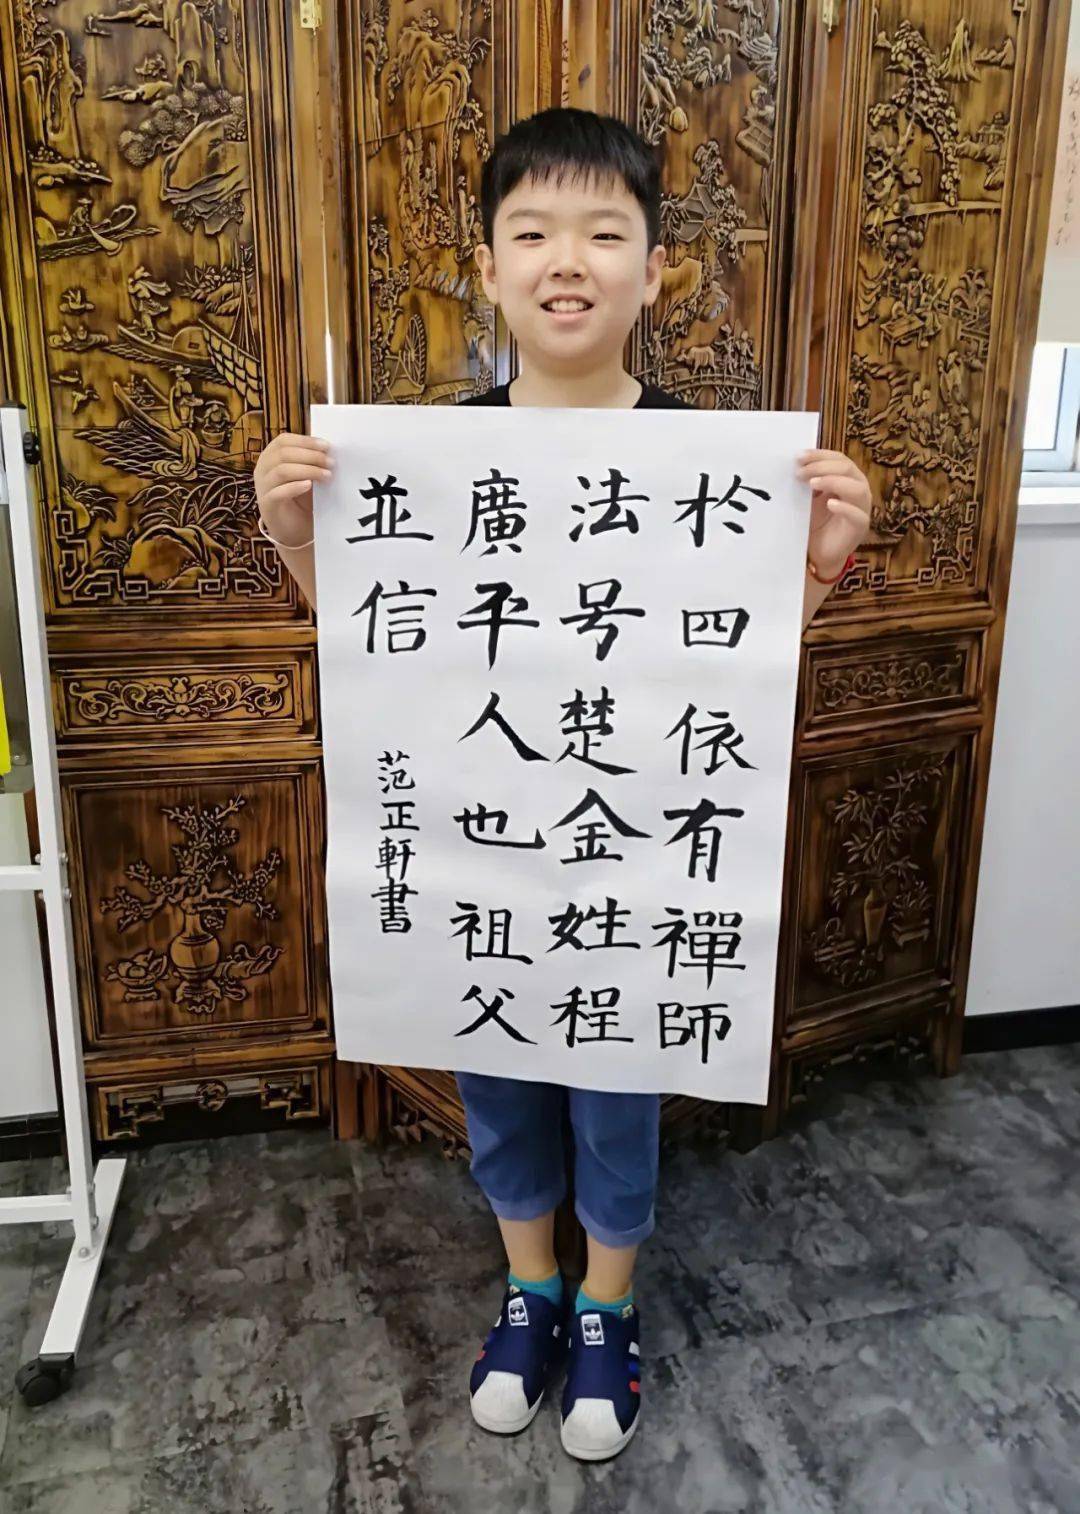 於四依有禪師
法号楚金姓程
廣平人也祖父
並信
范正軒書